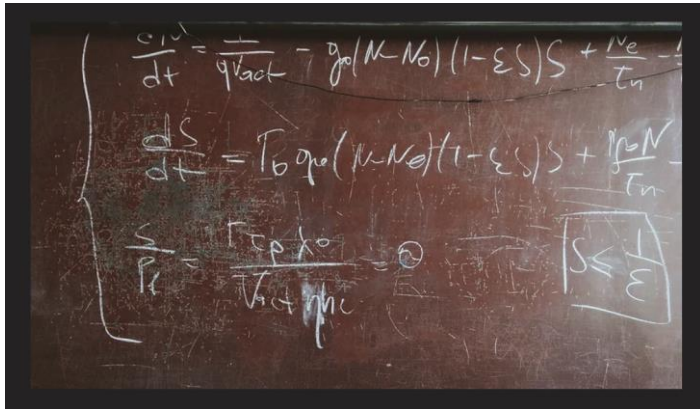 dN/dt = I/qVact - g0(N-N0)(1-εS)S + Ne/τn -
dS/dt = Γ0 g0(N-N0)(1-εS)S + N/τn -
S/Pf = Γτpλ0/Vact ηhc =
S ≤ 1/ε